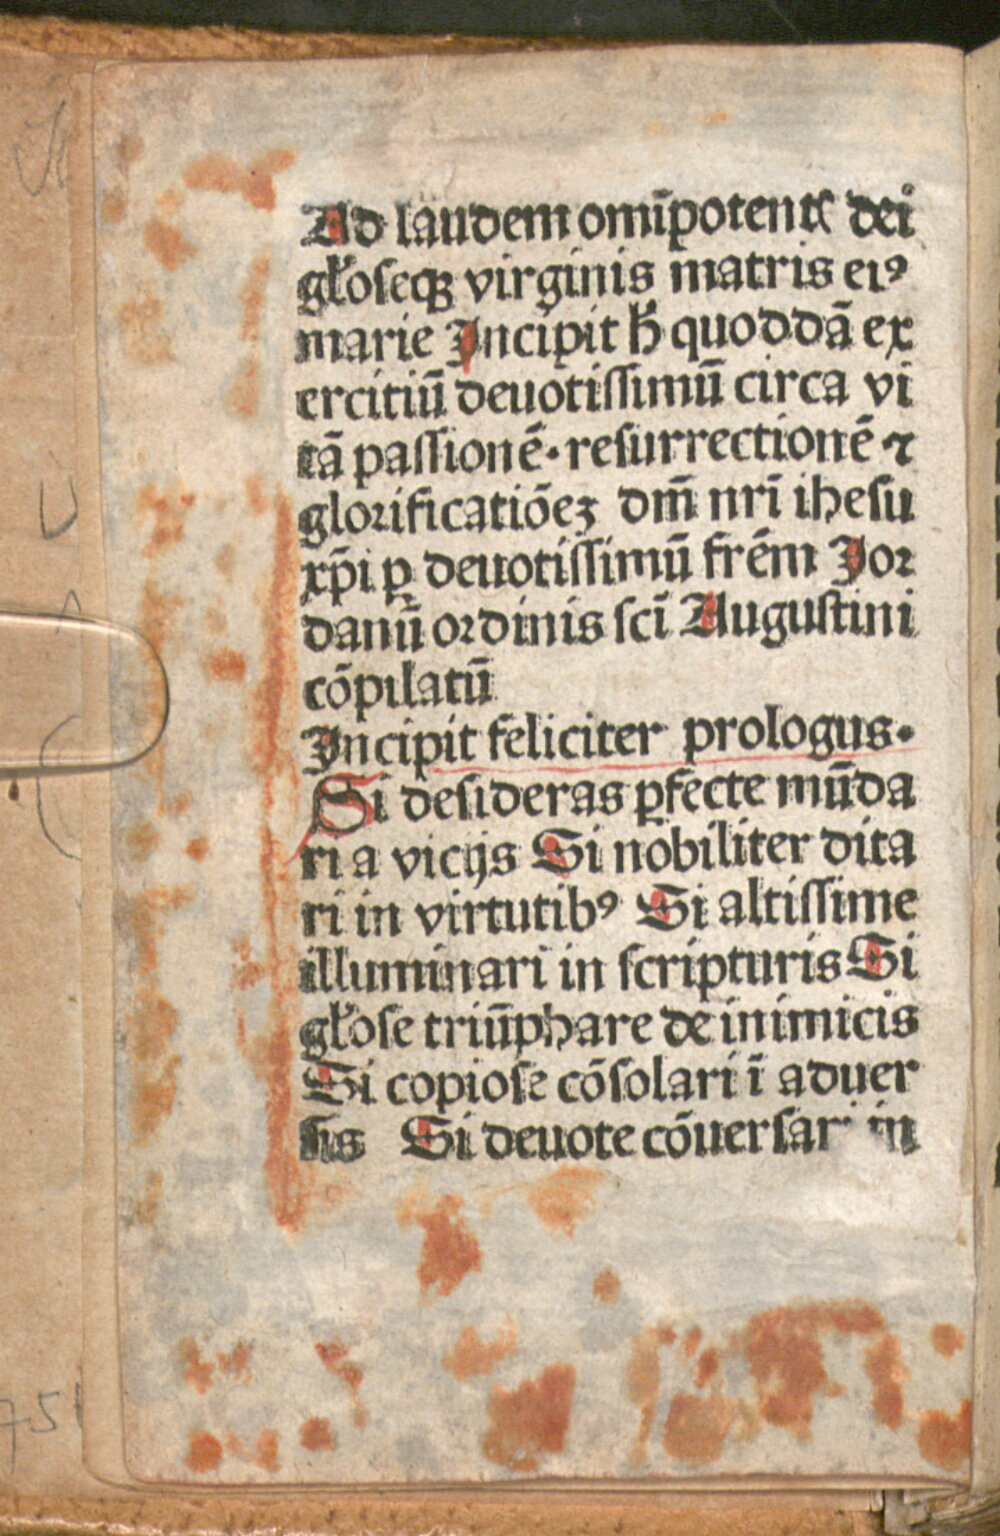 Ad laudem omīpotentꝭ dei
gl̄oseqꝫ virginis matris eiꝰ
marie Incipit h̄ quoddā ex
ercitiū deuotissimū circa vi
tā passionē. resurrectionē ⁊
glorificatiōeꝫ dm̄ nr̄i ihesu
xp̄i ꝑ deuotissimū frēm Jor
danū ordinis sci̅ Augustini
cōpilatū
Incipit feliciter prologus.
Si desideras ꝑfecte mūda
ri a vicijs Si nobiliter dita
ri in virtutibꝰ Si altissime
illuminari in scripturis Si
gl̄ose triūphare de inimicis
Si copiose cōsolari ī aduer
sis Si deuote cōuersari in